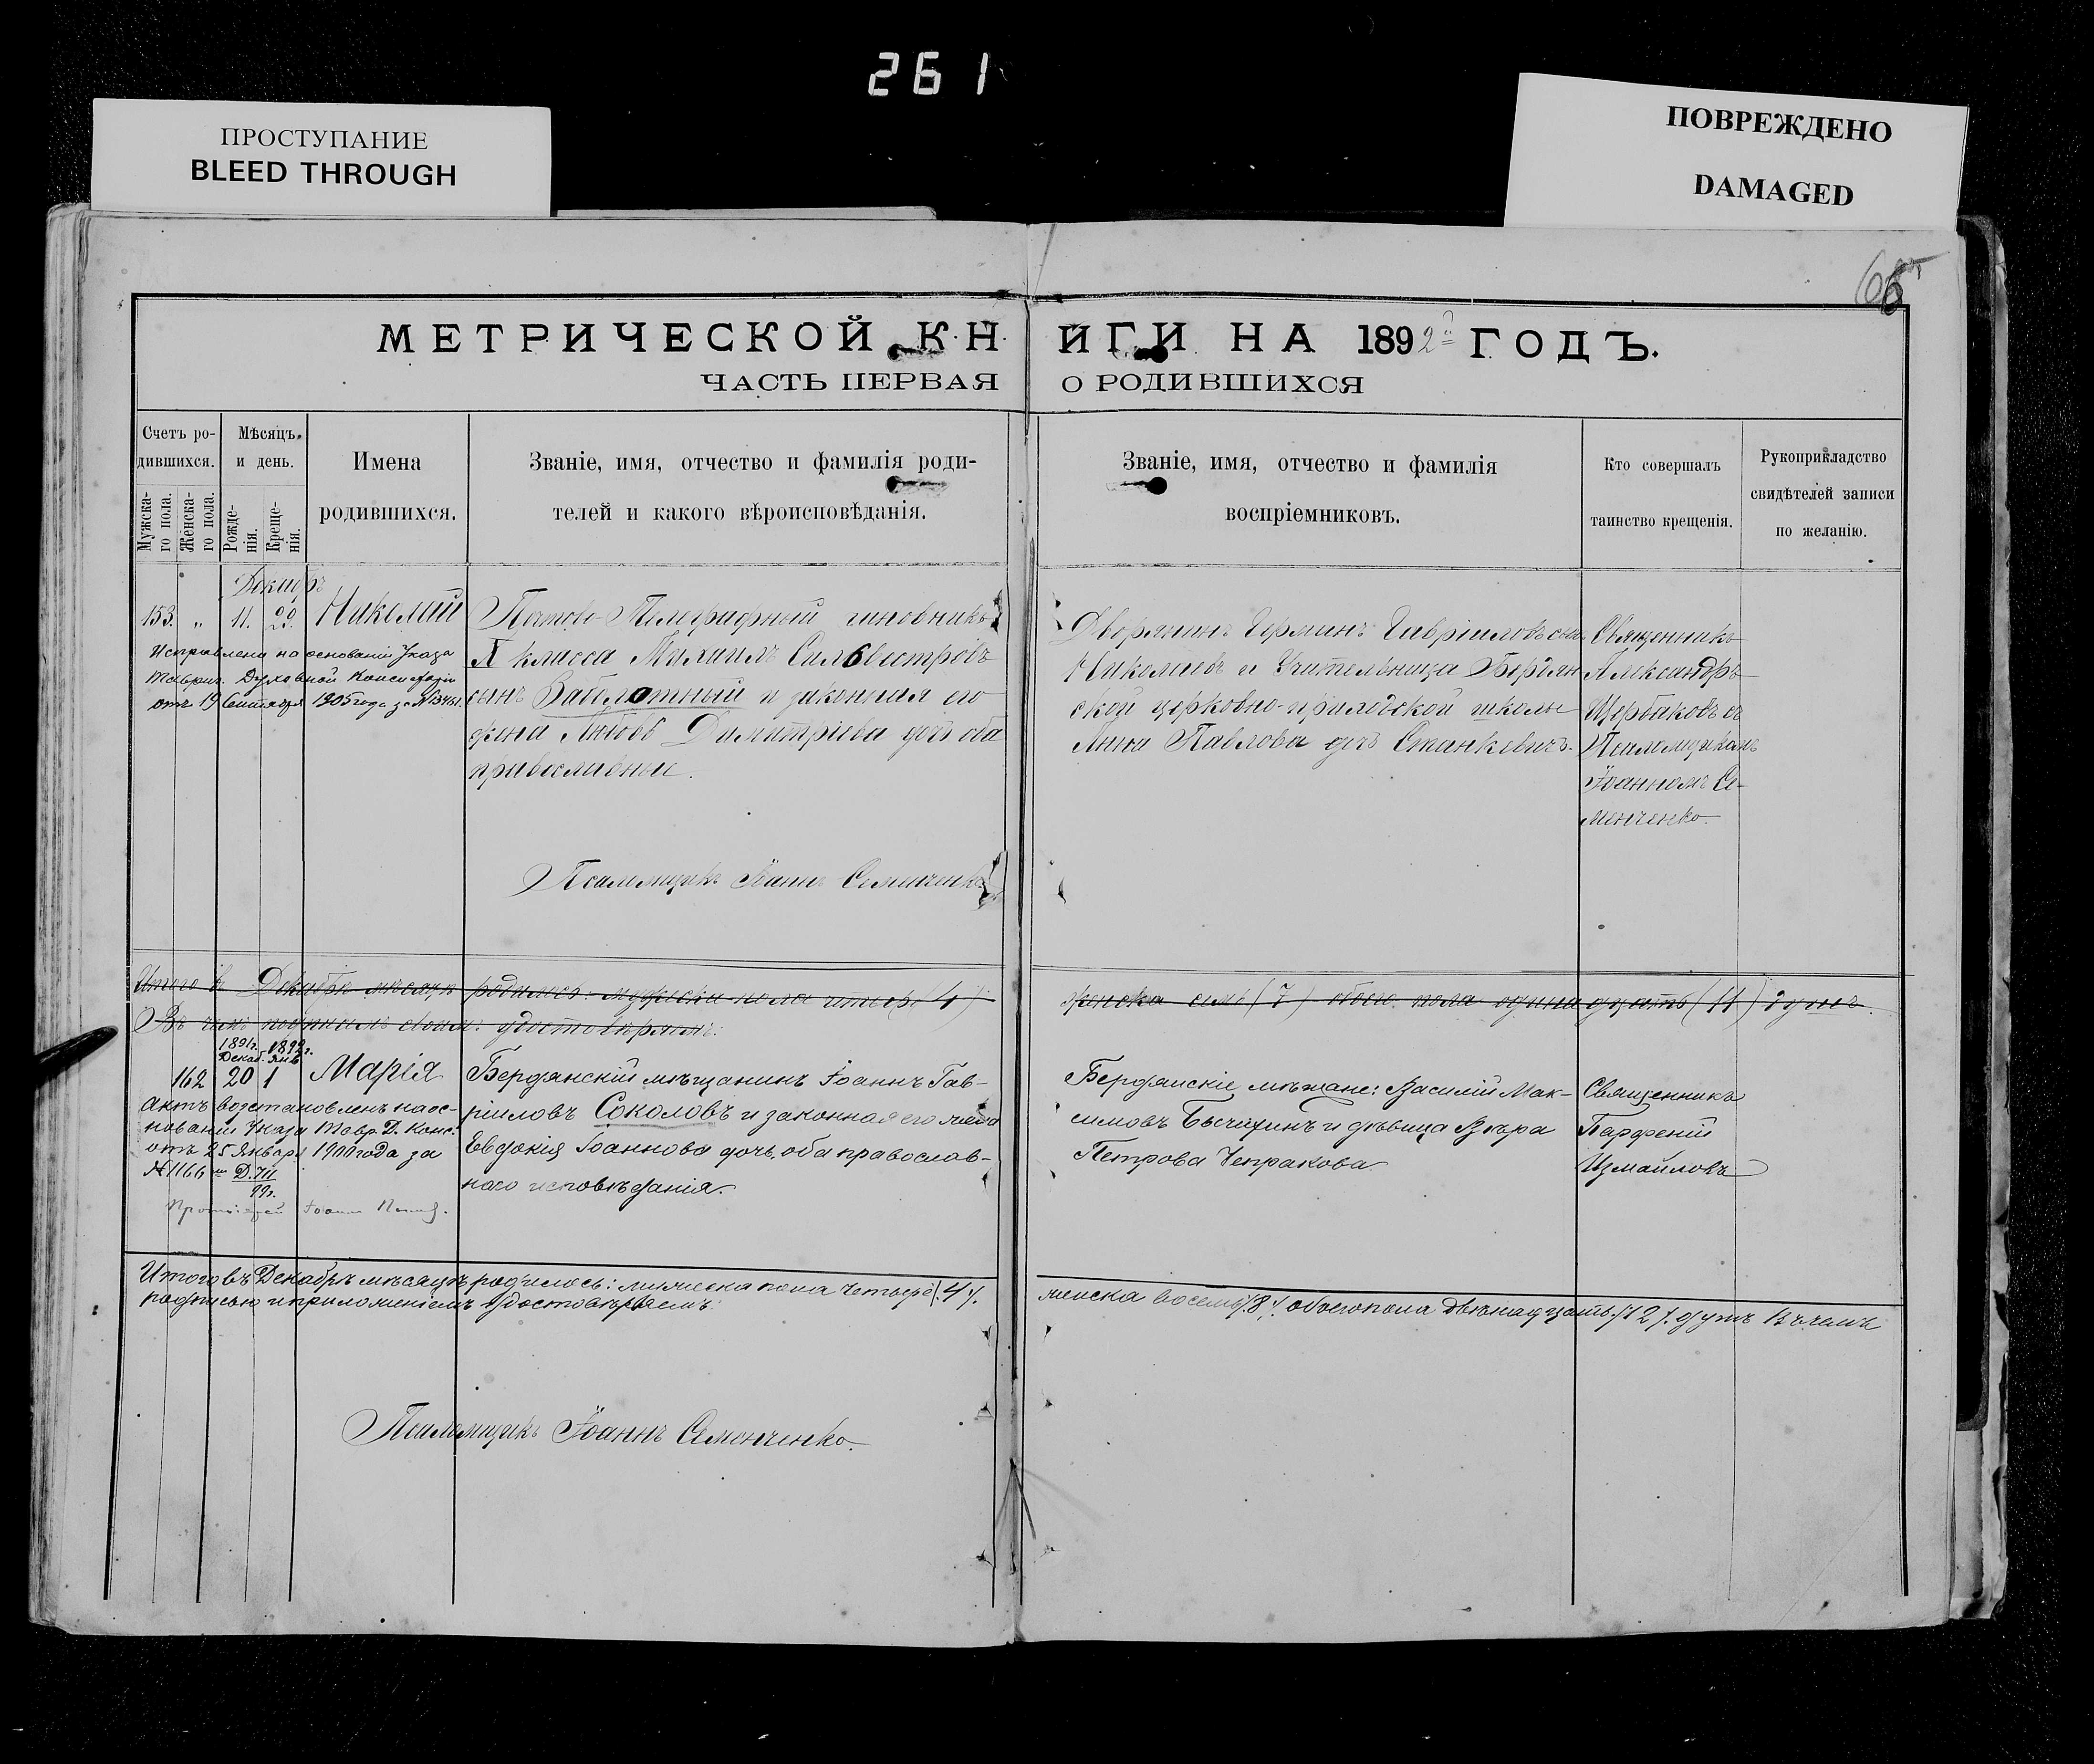 261
ПРОСТУПАНИЕ
BLEED THROUGH
ПОВРЕЖДЕНО
DAMAGED
МЕТРИЧЕСКОЙ КНИГИ НА 1892й ГОДЪ.
ЧАСТЬ ПЕРВАЯ О РОДИВШИХСЯ
Счетъ ро-
дившихся.
Мужска-
го пола.
Женска-
го пола.
Мѣсяцъ
и день.
Рожде-
нія.
Креще-
нія.
Имена
родившихся.
Званіе, имя, отчество и фамилія роди-
телей и какого вѣроисповѣданія.
Званіе, имя, отчество и фамилія
воспріемниковъ.
Кто совершалъ
таинство крещенія.
Рукоприкладство
свидѣтелей записи
по желанію.
Декабрь
153. „ 11. 29. Николай
Исправлена на основаніи Указа
Таврич. Духовной Консисторіи
отъ 19 Сентября 1905 года за № 13461.
Почтово-Телеграфный чиновникъ
X класса Михаилъ Сильвестровъ
сынъ Заблотный и законная его
жена Любовь Димитріева дочь оба
православные.
Псаломщикъ Іоаннъ Семенченко
Дворянинъ Германъ Гавріиловъ сынъ
Николаевъ и Учительница Бердян
ской церковно-приходской школы
Анна Павлова дочь Станкевичъ.
Священникъ
Александръ
Щербаковъ съ
Псаломщикомъ
Іоанномъ Се-
менченко.
Итого въ Декабрѣ мѣсяцѣ родилось: мужеска пола четыре (4)
женска семь (7) обоего пола одинадцать (11) душъ.
Въ чемъ подписомъ своимъ удостовѣряемъ:
1891г. 1892г.
Декаб. Янв
162 20 1 Марія
Актъ возстановленъ на ос-
нованіи Указа Тавр. Д. Конс.
отъ 25 Января 1900 года за
№ 1166
99г.
Протоіерей Іоаннъ
Бердянскій мѣщанинъ Іоаннъ Гав-
ріиловъ Соколовъ и законная его жена
Евдокія Іоаннова дочь, оба православ-
наго исповѣданія.
Бердянскіе мѣщане: Василій Мак-
симовъ Бычихинъ и дѣвица Вѣра
Петрова Чепракова
Священникъ
Парфеній
Измаиловъ
Итого въ Декабрѣ мѣсяцѣ родилось: мужеска пола четыре /4/.
женска восемь /8/, обоего пола двѣнадцать /12/. душъ Въ чемъ
подписью и приложеніемъ удостовѣряемъ:
Псаломщикъ Іоаннъ Семенченко.